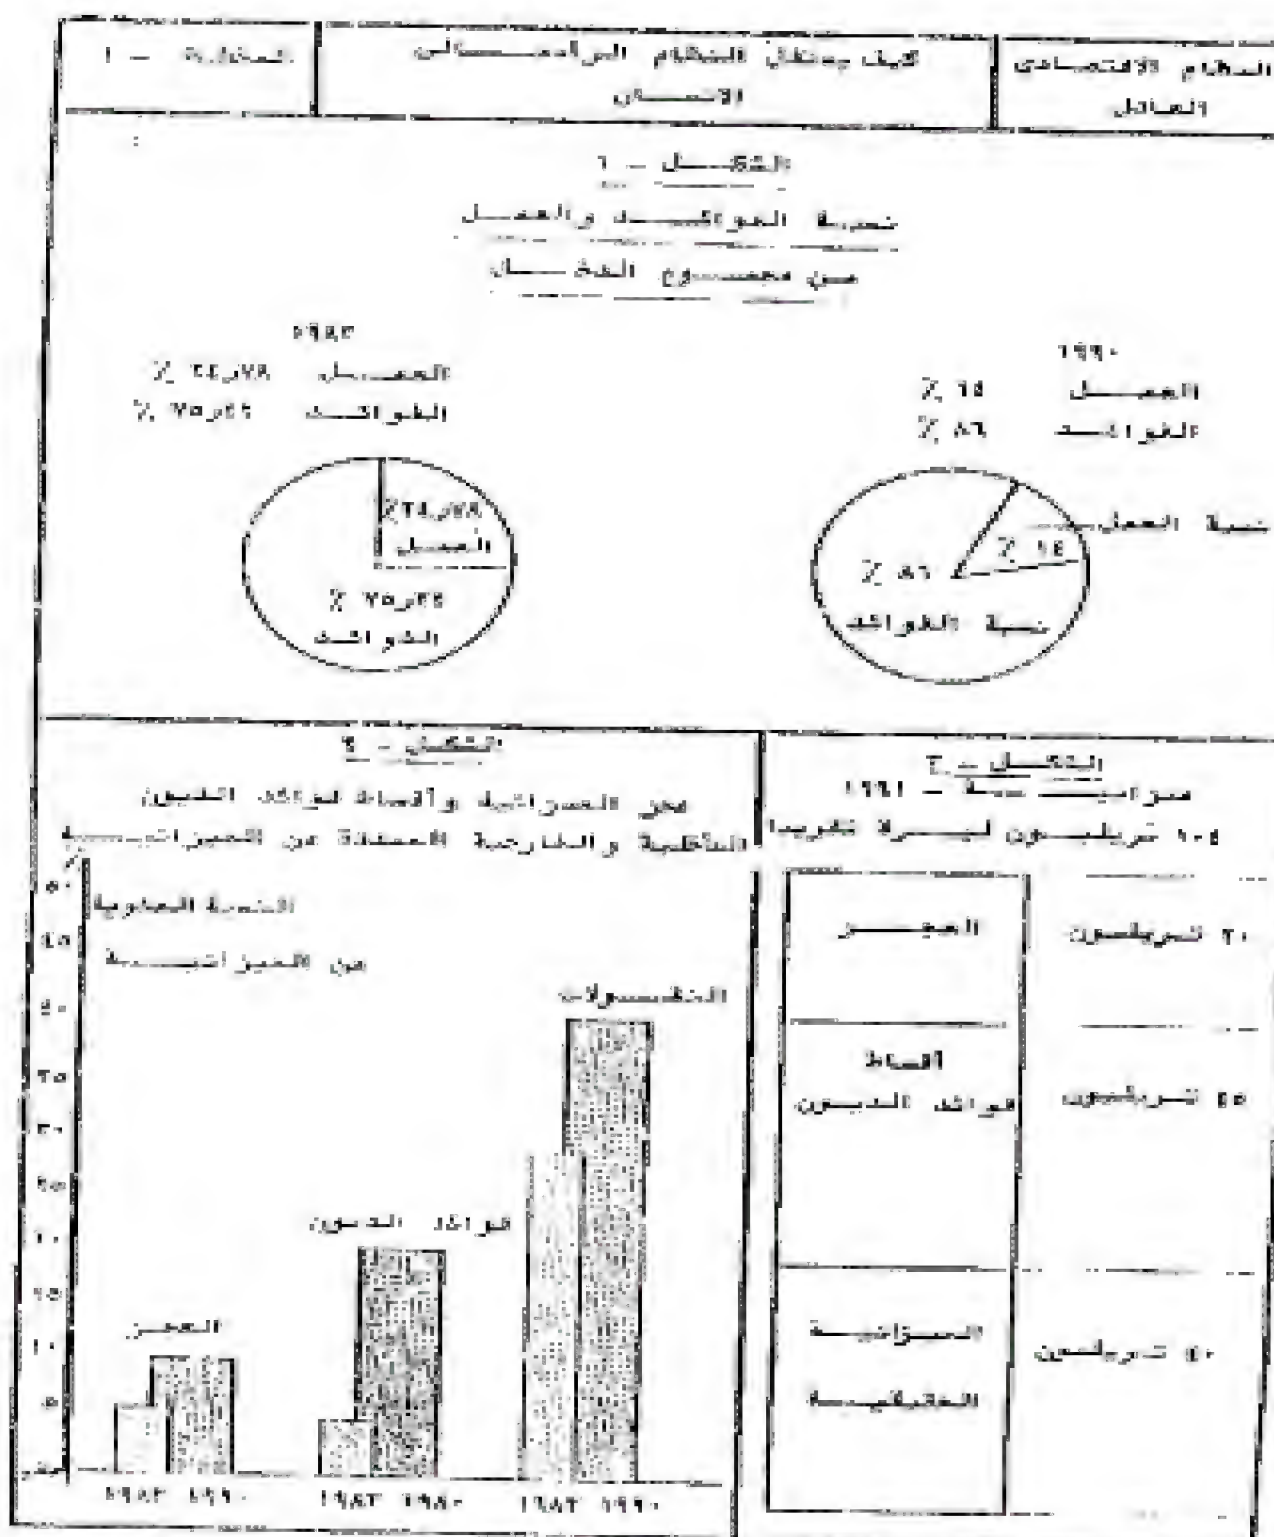 النظام الاقتصادي
العادل
كيف يستغل النظام الرأسمالي
الانسان
الشكل - ١
نسبة الفوائد والعمل
من مجموع الدخل
١٩٩٠
العمل ١٤ ٪
الفوائد ٨٦ ٪
نسبة العمل
١٤ ٪
٨٦ ٪
نسبة الفوائد
١٩٨٣
العمل ٢٤٫٧٨ ٪
الفوائد ٪
٢٤٫٧٨ ٪
العمل
٪
الفوائد
الشكل - ٣
ميزانيـة - ١٩٩١
١٠٤ تريليون ليرة تقريبا
العجز
تريليون
أقساط
فوائد الديون
٤٥ تريليون
الميزانية
الحقيقية
٤٠ تريليون
الشكل - ٢
عجز الميزانية وأقساط فوائد الديون
الداخلية والخارجية من الميزانية
٪
النسبة المئوية
من الميزانية
٥٠
٤٥
٤٠
٣٥
٣٠
٢٥
٢٠
١٥
١٠
٥
العجز
فوائد الديون
١٩٨٣ ١٩٩٠
١٩٨٣
١٩٨٣ ١٩٩٠